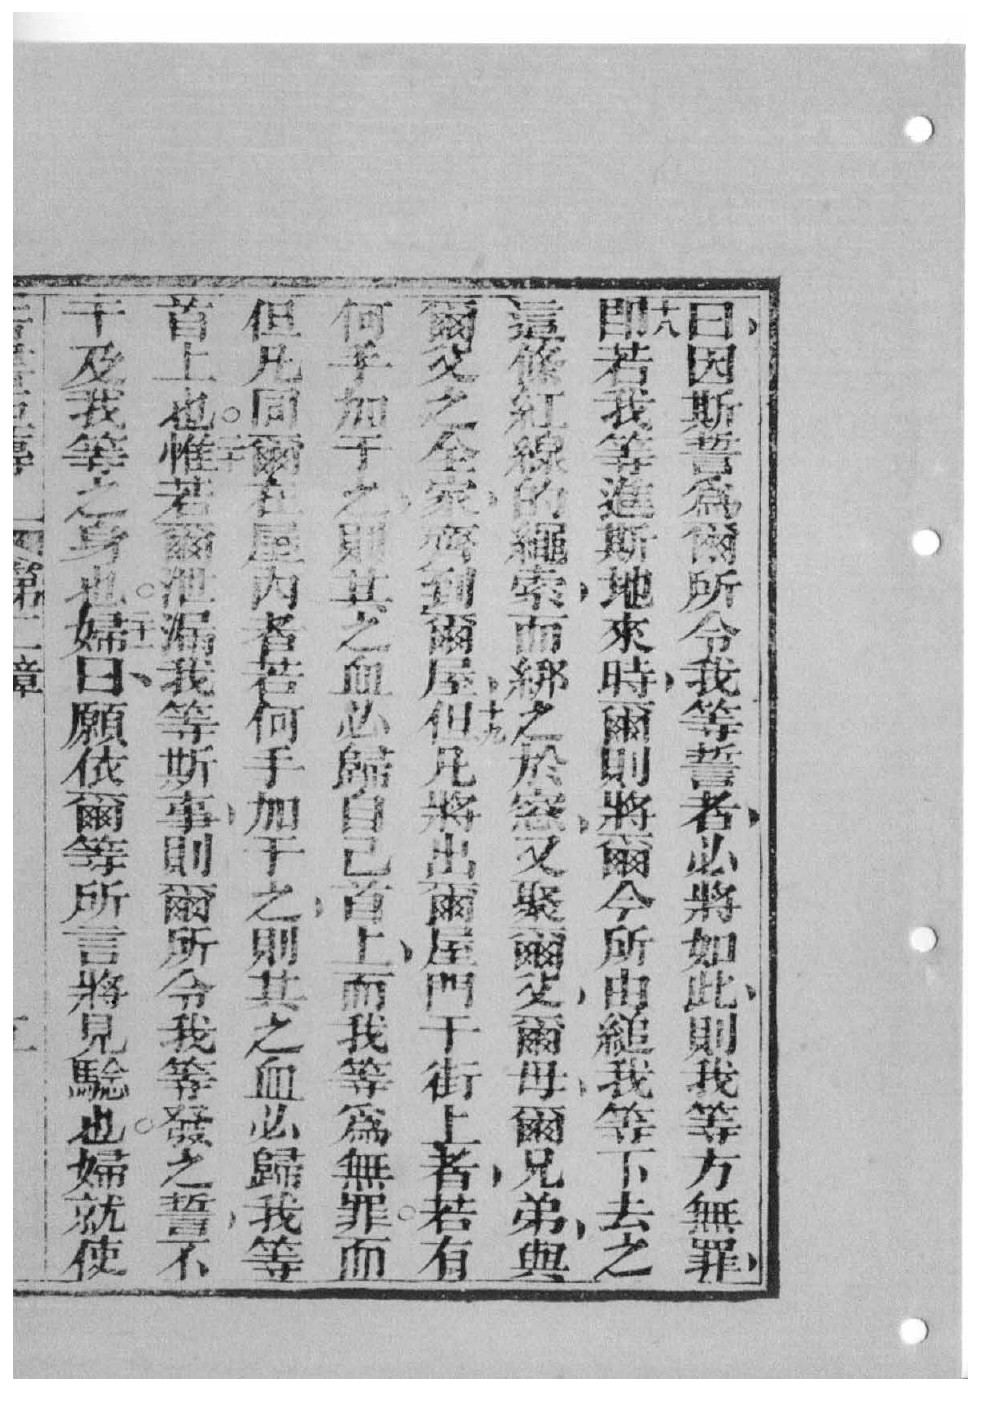 曰、因斯誓爲爾所令我等誓者、必將如此、則我等方無罪、
十八即若我等進斯地來時、爾則將爾今所由縋我等下去之
這條紅線的繩索、而綁之於窓、又聚爾父、爾母、爾兄弟、與
爾父之全家、齊到爾屋、十九但凡將出爾屋門于街上者、若有
何手加于之、則其之血必歸自己首上、而我等爲無罪。而
但凡同爾在屋內者、若何手加于之、則其之血必歸我等
首上也。二十惟若爾泄漏我等斯事、則爾所令我等發之誓、不
干及我等之身也。二十一婦曰、願依爾等所言將見騐也。婦就使
第二章